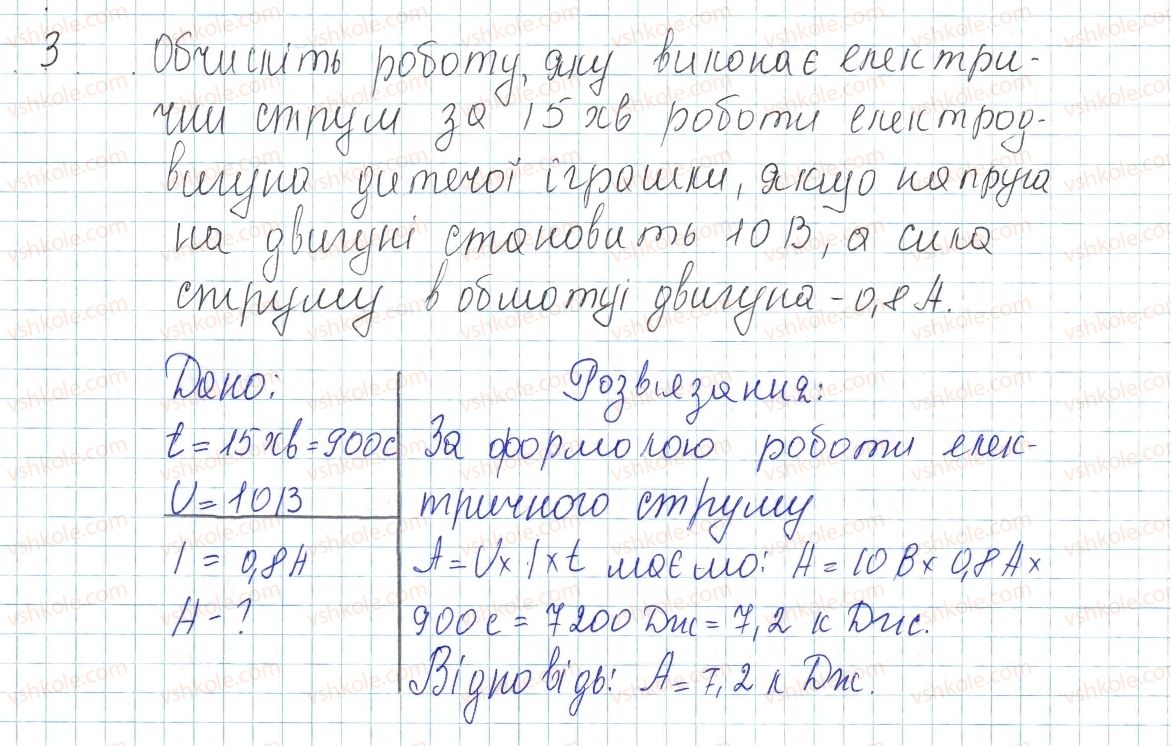 3 Обчисліть роботу, яку виконає електри-
чии струм за 15 хв роботи електрод-
вигуна дитечої іграшки, якщо напруга
на двигуні становить 10 В, а сила
струму в обмотці двигуна - 0,8 А.
Дано:
t = 15 хв = 900 с
U = 10 В
I = 0,8 А
А - ?
Розв'язання:
За формолою роботи елек-
тричного струму
А = U × I × t маємо: А = 10 В × 0,8 А ×
900 с = 7200 Дж = 7,2 к Дж.
Відповідь: А = 7,2 к Дж.
vshkole.com